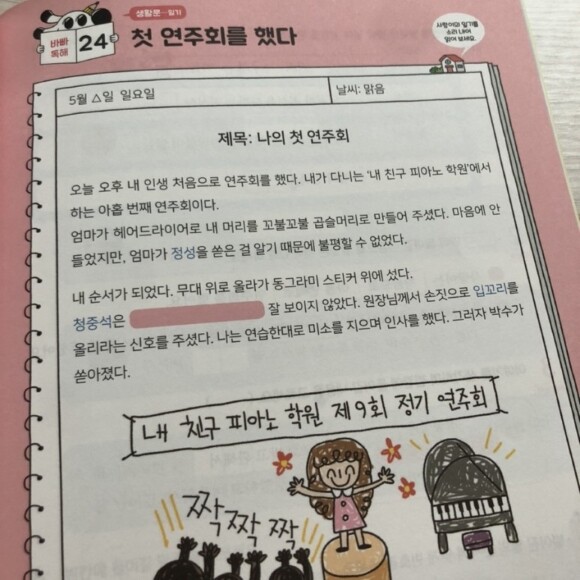 생활문-일기
바빠
독해
24
첫 연주회를 했다
사랑이의 일기를
소리 내어
읽어 보세요.
5월 △일 일요일
날씨: 맑음
제목: 나의 첫 연주회
오늘 오후 내 인생 처음으로 연주회를 했다. 내가 다니는 '내 친구 피아노 학원'에서
하는 아홉 번째 연주회이다.
엄마가 헤어드라이어로 내 머리를 꼬불꼬불 곱슬머리로 만들어 주셨다. 마음에 안
들었지만, 엄마가 정성을 쏟은 걸 알기 때문에 불평할 수 없었다.
내 순서가 되었다. 무대 위로 올라가 동그라미 스티커 위에 섰다.
청중석은 잘 보이지 않았다. 원장님께서 손짓으로 입꼬리를
올리라는 신호를 주셨다. 나는 연습한대로 미소를 지으며 인사를 했다. 그러자 박수가
쏟아졌다.
내 친구 피아노 학원 제9회 정기 연주회
짝짝 짝